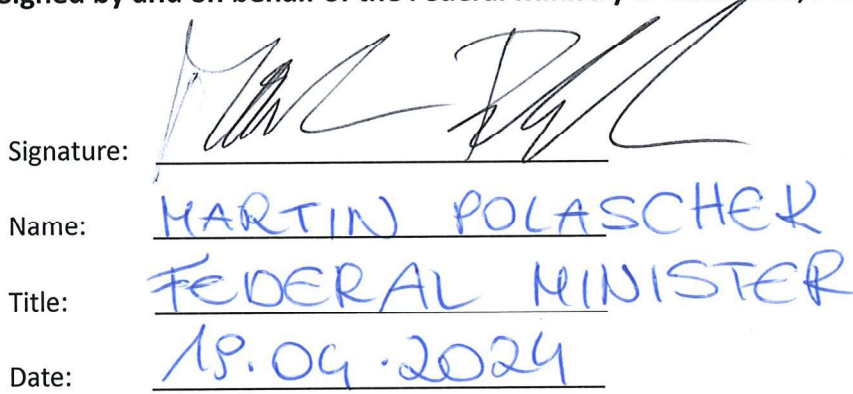 Signed by and on behalf of the Federal Ministry of
Signature:
Name: MARTIN POLASCHEK
Title: FEDERAL MINISTER
Date: 19.04.2024